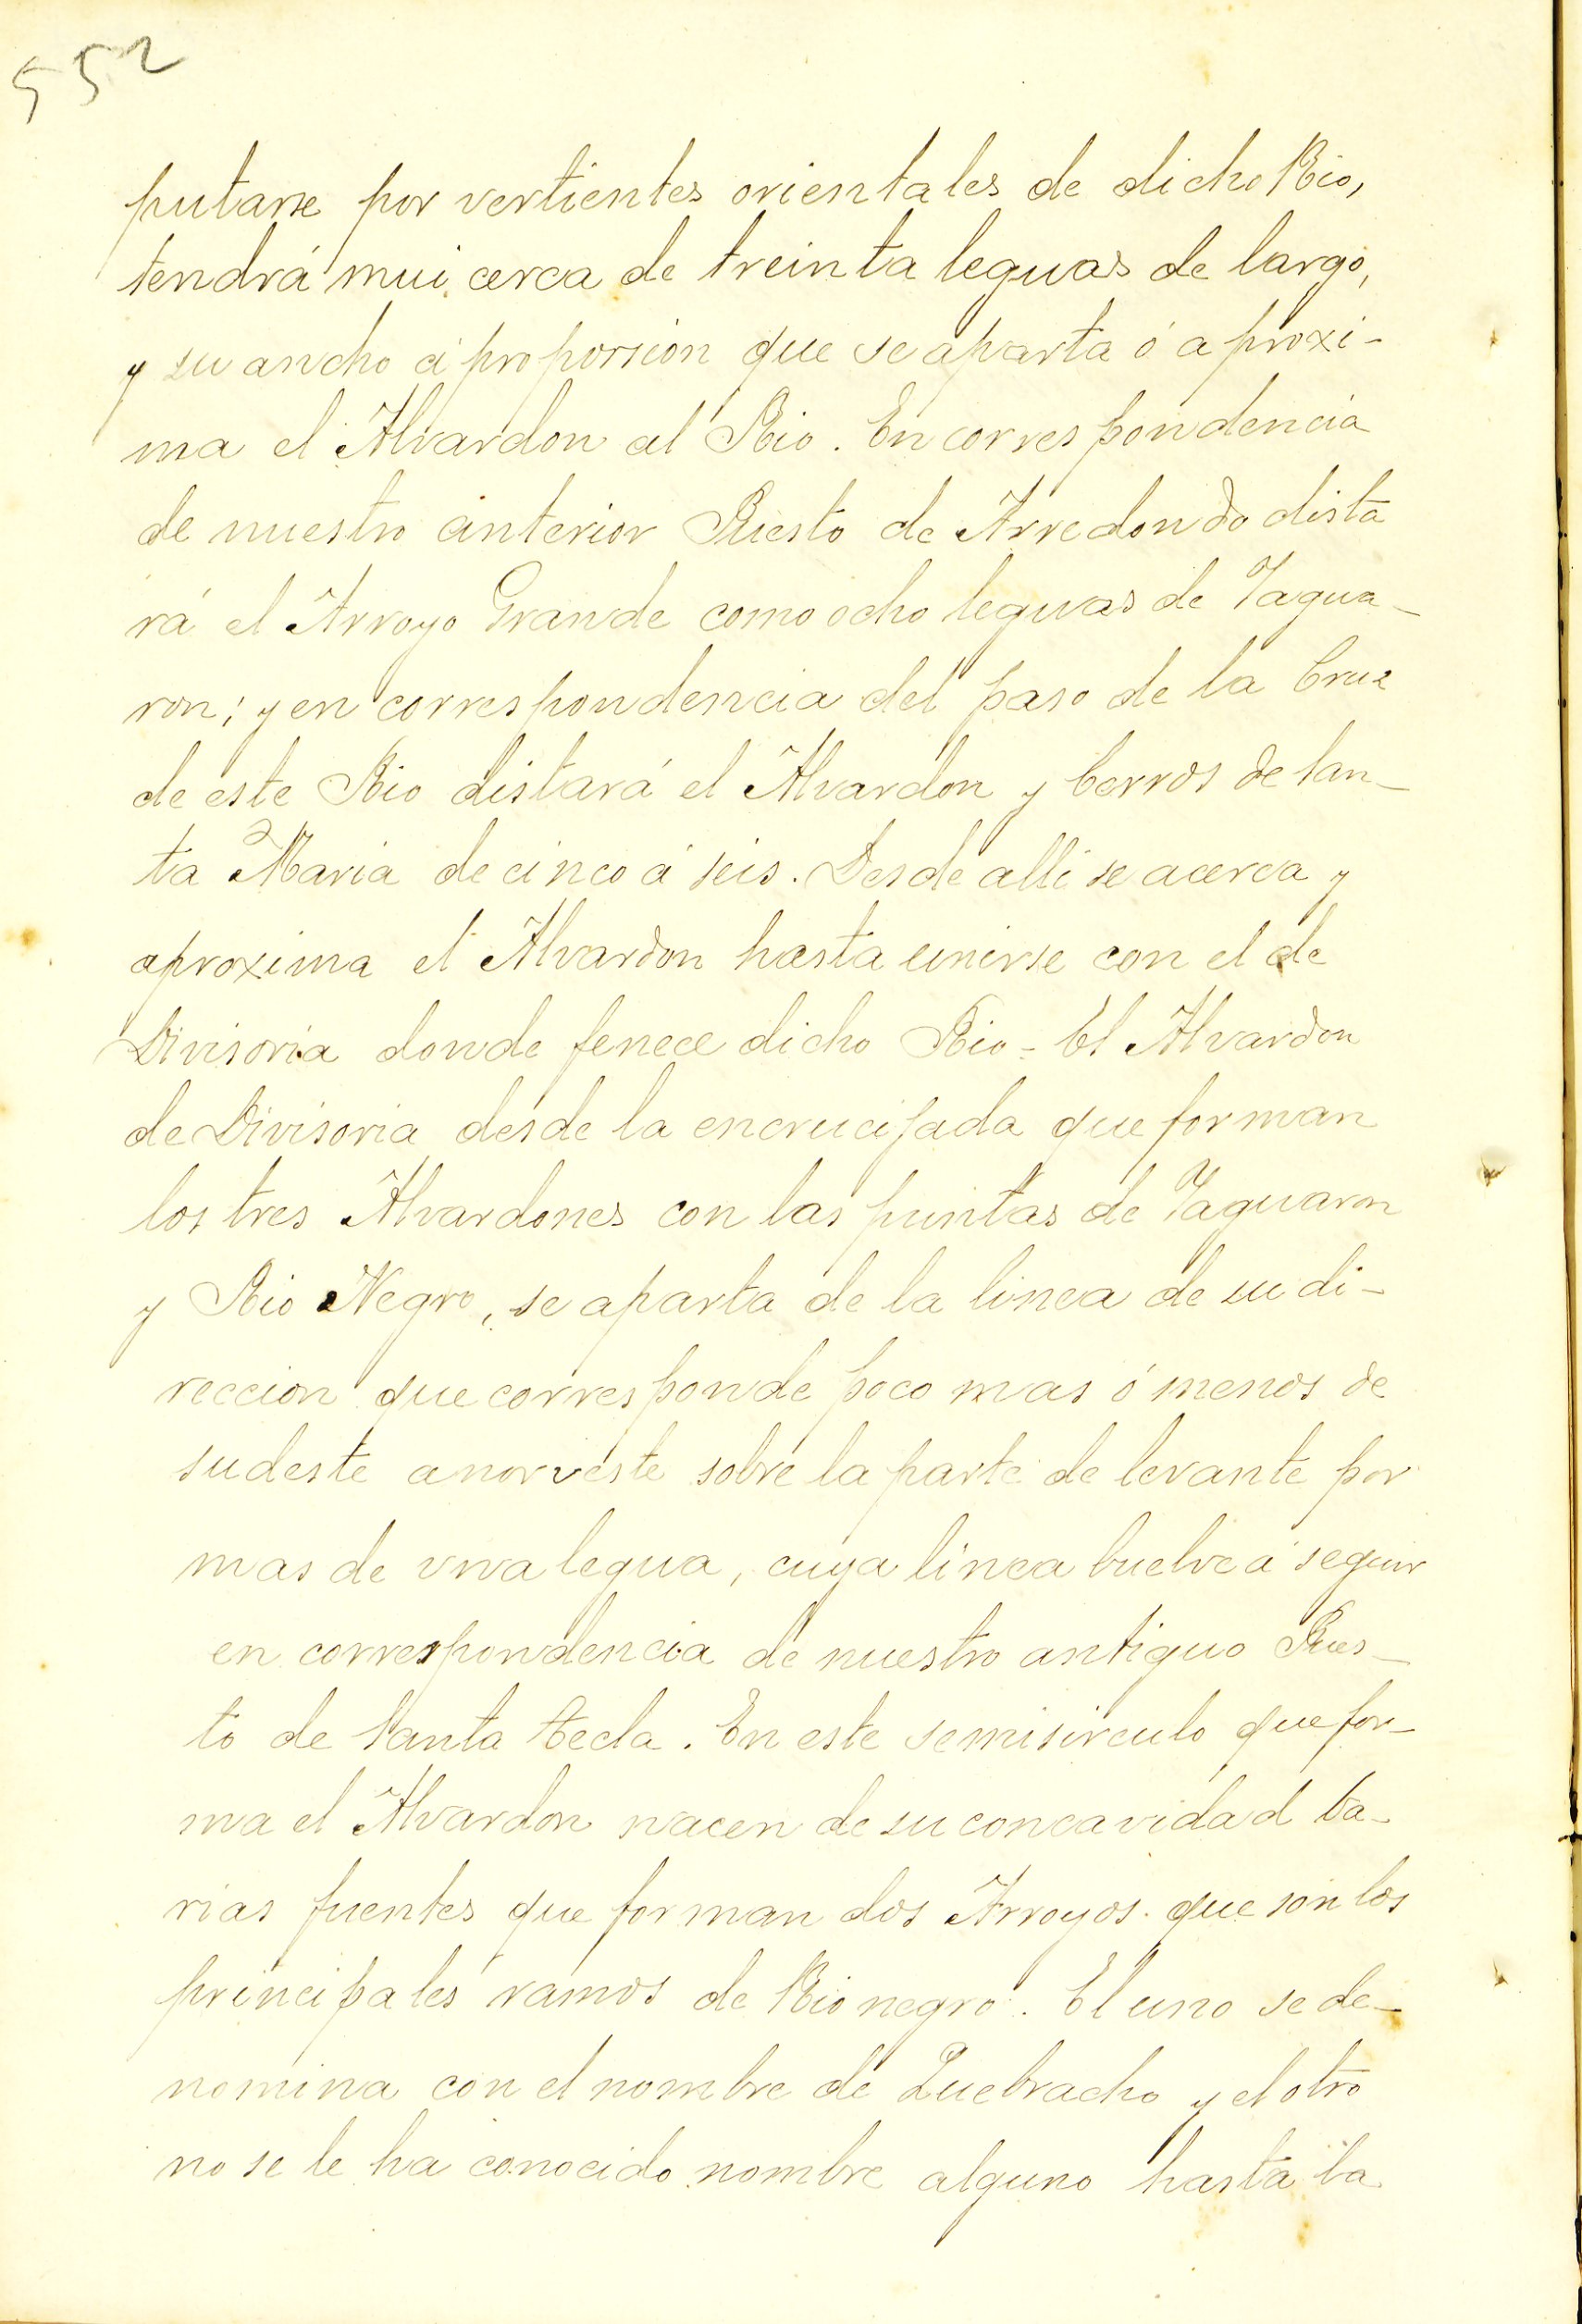 552
putarse por vertientes orientales de dicho Rio,
tendrá mui cerca de treinta leguas de largo,
y su ancho á proporsion que se aparta ó aproxi-
ma el Alvardon al Rio. En correspondencia
de nuestro anterior Puesto de Arredondo dista
rá el Arroyo Grande como ocho leguas de Yagua-
ron; y en correspondencia del paso de la Cruz
de este Rio distará el Alvardon y Cerros de San-
ta Maria de cinco á seis. Desde alli se acerca y
aproxima el Alvardon hasta unirse con el de
Divisoria donde fenece dicho Rio = El Alvardon
de Divisoria desde la encrucijada que forman
los tres Alvardones con las puntas de Yaguaron
y Rio Negro, se aparta de la linea de su di-
reccion que corresponde poco mas ó menos de
sudeste a norveste sobre la parte de levante por
mas de una legua, cuya linea buelve á seguir
en correspondencia de nuestro antiguo Pues-
to de Santa Tecla. En este semisirculo que for-
ma el Alvardon nacen de su concavidad ba-
rias fuentes que forman dos Arroyos que son los
principales ramos de Rio negro. El uno se de-
nomina con el nombre de Quebracho y el otro
no se le ha conocido nombre alguno hasta la